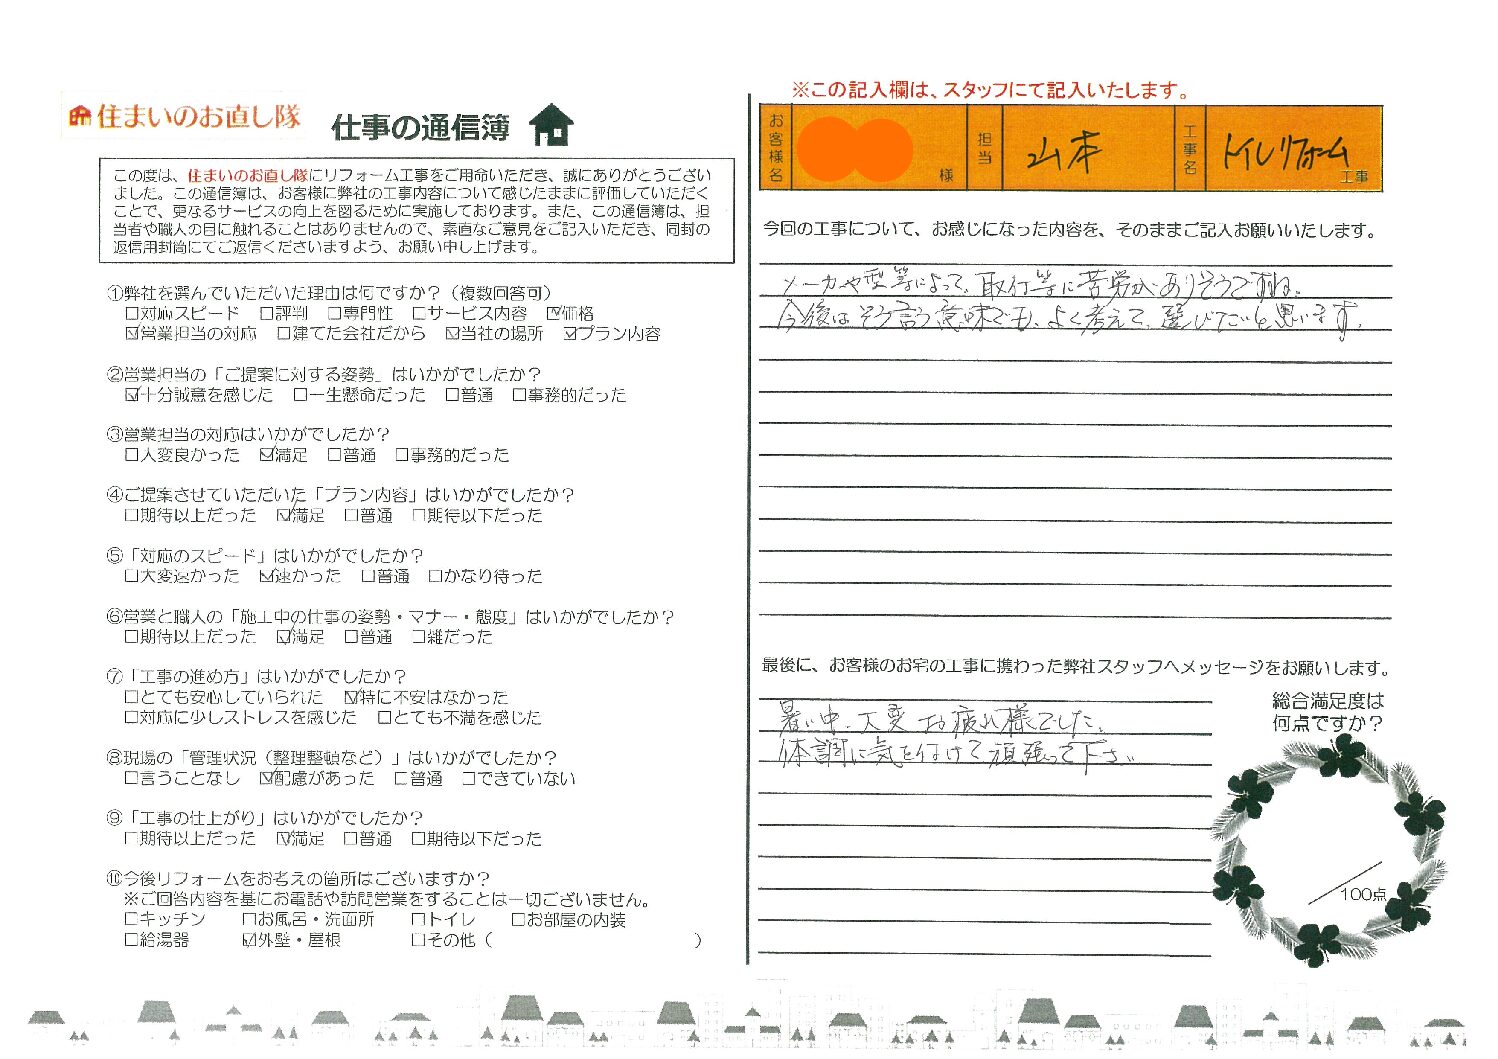 住まいのお直し隊
仕事の通信簿
この度は、住まいのお直し隊にリフォーム工事をご用命いただき、誠にありがとうござい
ました。この通信簿は、お客様に弊社の工事内容について感じたままに評価していただく
ことで、更なるサービスの向上を図るために実施しております。また、この通信簿は、担
当者や職人の目に触れることはありませんので、素直なご意見をご記入いただき、同封の
返信用封筒にてご返信くださいますよう、お願い申し上げます。
①弊社を選んでいただいた理由は何ですか？（複数回答可）
□対応スピード □評判 □専門性 □サービス内容 ☑価格
☑営業担当の対応 □建てた会社だから ☑当社の場所 ☑プラン内容
②営業担当の「ご提案に対する姿勢」はいかがでしたか？
☑十分誠意を感じた □一生懸命だった □普通 □事務的だった
③営業担当の対応はいかがでしたか？
□大変良かった ☑満足 □普通 □事務的だった
④ご提案させていただいた「プラン内容」はいかがでしたか？
□期待以上だった ☑満足 □普通 □期待以下だった
⑤「対応のスピード」はいかがでしたか？
□大変速かった ☑速かった □普通 □かなり待った
⑥営業と職人の「施工中の仕事の姿勢・マナー・態度」はいかがでしたか？
□期待以上だった ☑満足 □普通 □雑だった
⑦「工事の進め方」はいかがでしたか？
□とても安心していられた ☑特に不安はなかった
□対応に少しストレスを感じた □とても不満を感じた
⑧現場の「管理状況（整理整頓など）」はいかがでしたか？
□言うことなし ☑配慮があった □普通 □できていない
⑨「工事の仕上がり」はいかがでしたか？
□期待以上だった ☑満足 □普通 □期待以下だった
⑩今後リフォームをお考えの箇所はございますか？
※ご回答内容を基にお電話や訪問営業をすることは一切ございません。
□キッチン □お風呂・洗面所 □トイレ □お部屋の内装
□給湯器 ☑外壁・屋根 □その他（ ）
※この記入欄は、スタッフにて記入いたします。
お客様名 様 担当 山本 工事名 トイレリフォーム 工事
今回の工事について、お感じになった内容を、そのままご記入お願いいたします。
メーカや型等によって、取付等に苦労がありそうですね。
今後はそう言う意味でも、よく考えて、選びたいと思います。
最後に、お客様のお宅の工事に携わった弊社スタッフへメッセージをお願いします。
暑い中、大変お疲れ様でした。
体調に気を付けて頑張って下さい
総合満足度は
何点ですか？
／100点